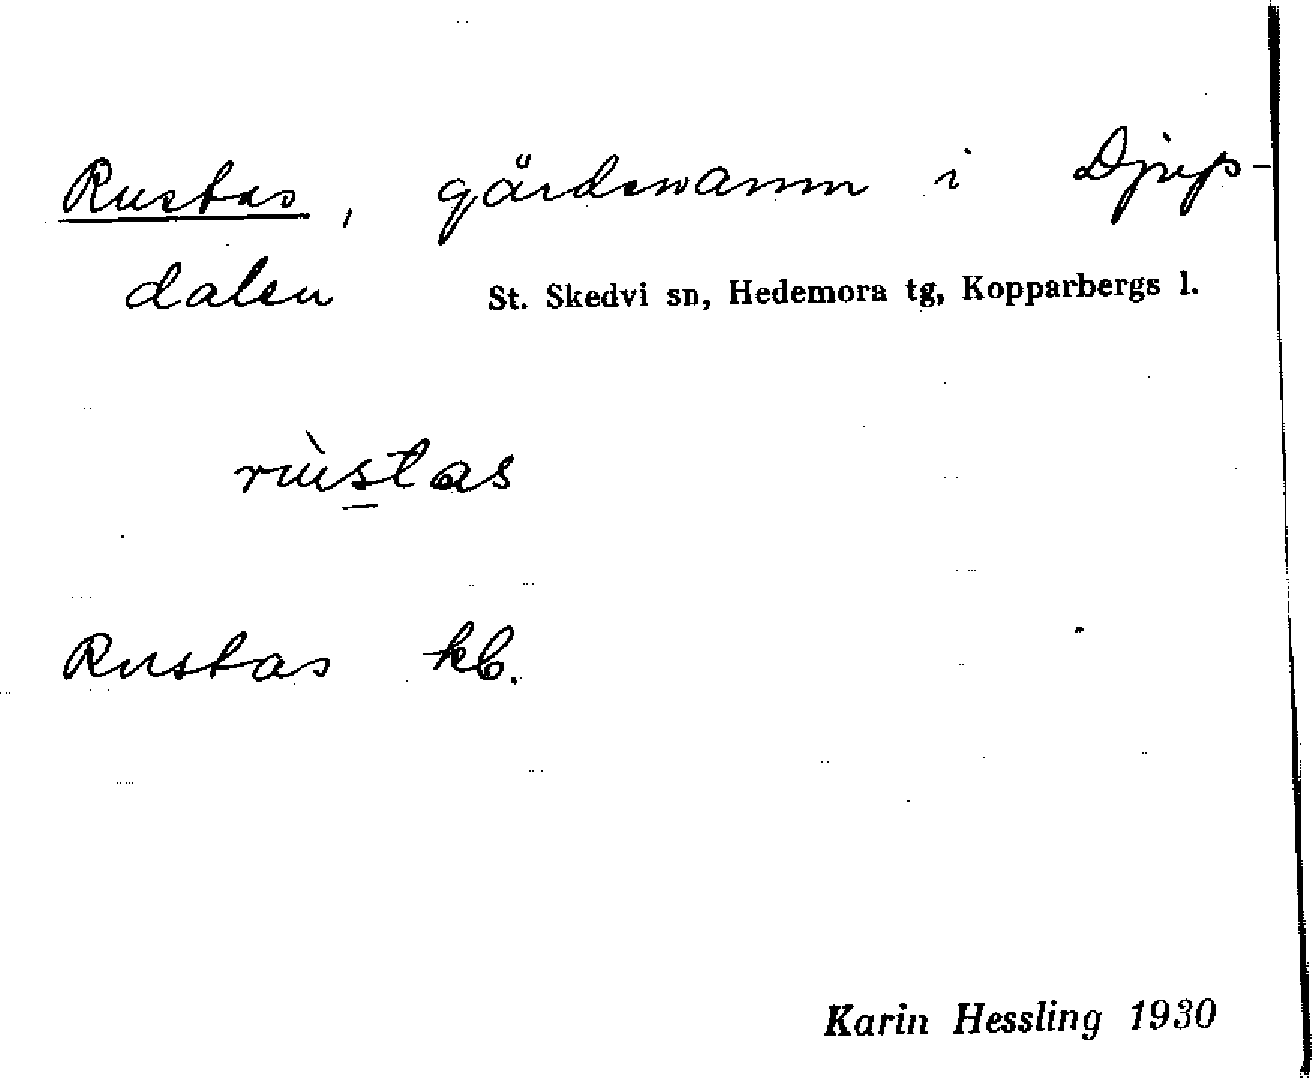 Rustas, gårdsnamn i Djup-
dalen St. Skedvi sn, Hedemora tg, Kopparbergs l.
rùstas
Rustas kb.
Karin Hessling 1930